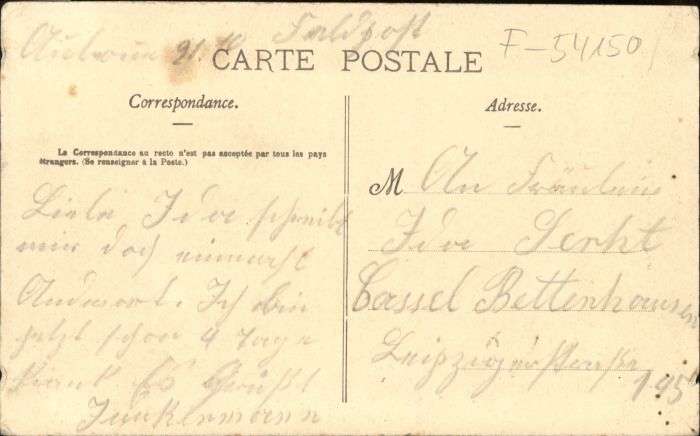 Feldpost
F-54150
CARTE POSTALE
Correspondance.
Adresse.
La Correspondance au recto n'est pas acceptée par tous les pays
étrangers. (Se renseigner à la Poste.)
Liebe Ida schreibt
mir doch einmahl
Andwort. Ich bin
jetzt schon 4 Tage
krank es Grüßt
Junkermann
M An Fräulein
Ida Serht
Cassel Bettenhausen
Leipzigerstraße
195